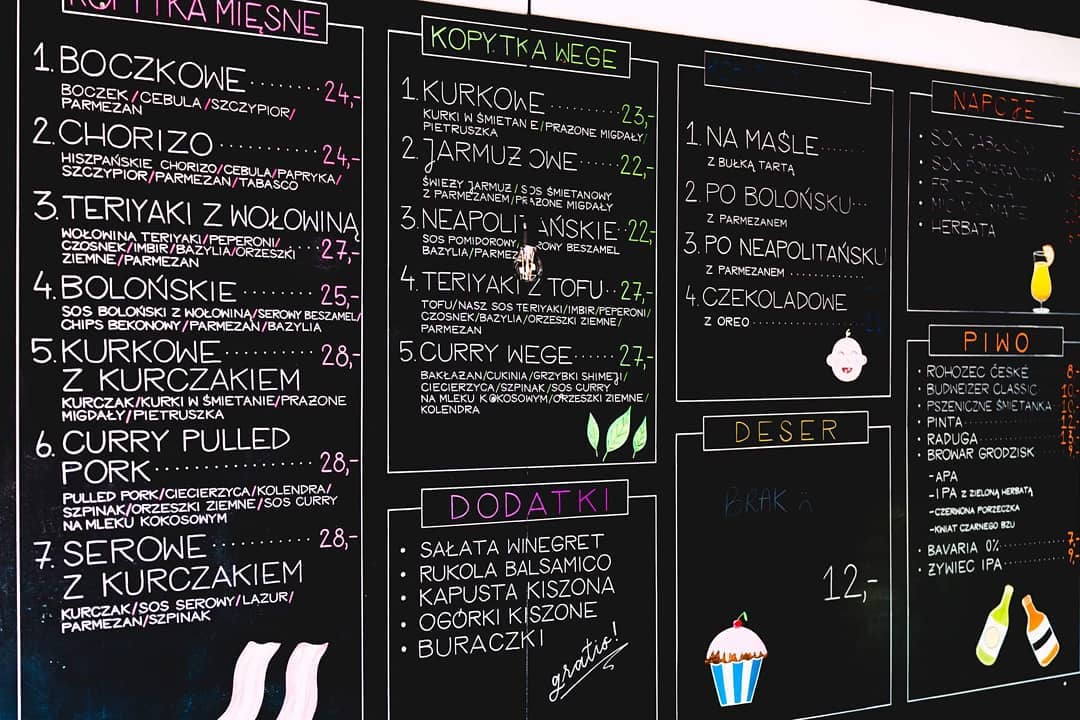 KOPYTKA MIĘSNE
1. BOCZKOWE 24,-
BOCZEK/CEBULA/SZCZYPIOR/
PARMEZAN
2. CHORIZO 24,-
HISZPAŃSKIE CHORIZO/CEBULA/PAPRYKA/
SZCZYPIOR/PARMEZAN/TABASCO
3. TERIYAKI Z WOŁOWINĄ
WOŁOWINA TERIYAKI/PEPERONI/
CZOSNEK/IMBIR/BAZYLIA/ORZESZKI 27,-
ZIEMNE/PARMEZAN
4. BOLOŃSKIE 25,-
SOS BOLOŃSKI Z WOŁOWINĄ/SEROWY BESZAMEL/
CHIPS BEKONOWY/PARMEZAN/BAZYLIA
5. KURKOWE 28,-
Z KURCZAKIEM
KURCZAK/KURKI W ŚMIETANIE/PRAŻONE
MIGDAŁY/PIETRUSZKA
6. CURRY PULLED
PORK 28,-
PULLED PORK/CIECIERZYCA/KOLENDRA/
SZPINAK/ORZESZKI ZIEMNE/SOS CURRY
NA MLEKU KOKOSOWYM
7. SEROWE 28,-
Z KURCZAKIEM
KURCZAK/SOS SEROWY/LAZUR/
PARMEZAN/SZPINAK
KOPYTKA WEGE
1. KURKOWE 23,-
KURKI W ŚMIETANIE/PRAŻONE MIGDAŁY/
PIETRUSZKA
2. JARMUŻOWE 22,-
ŚWIEŻY JARMUŻ/SOS ŚMIETANOWY
Z PARMEZANEM/PRAŻONE MIGDAŁY
3. NEAPOLITAŃSKIE 22,-
SOS POMIDOROWY/SEROWY BESZAMEL
BAZYLIA/PARMEZAN
4. TERIYAKI Z TOFU 27,-
TOFU/NASZ SOS TERIYAKI/IMBIR/PEPERONI/
CZOSNEK/BAZYLIA/ORZESZKI ZIEMNE/
PARMEZAN
5. CURRY WEGE 27,-
BAKŁAŻAN/CUKINIA/GRZYBKI SHIMEJI/
CIECIERZYCA/SZPINAK/SOS CURRY
NA MLEKU KOKOSOWYM/ORZESZKI ZIEMNE/
KOLENDRA
DODATKI
• SAŁATA WINEGRET
• RUKOLA BALSAMICO
• KAPUSTA KISZONA
• OGÓRKI KISZONE
• BURACZKI
gratis!
1. NA MAŚLE
Z BUŁKĄ TARTĄ
2. PO BOLOŃSKU
Z PARMEZANEM
3. PO NEAPOLITAŃSKU
Z PARMEZANEM
4. CZEKOLADOWE
Z OREO
DESER
BRAK
12,-
NAPOJE
• SOK JABŁKOWY
• SOK POMARAŃCZOWY
• FRITZ-KOLA
• HERBATA
PIWO
• ROHOZEC ČESKÉ 8-
• BUDWEIZER CLASSIC 10-
• PSZENICZNE ŚMIETANKA 10-
• PINTA 12-
• RADUGA 13-
• BROWAR GRODZISK 9-
-APA
-IPA Z ZIELONĄ HERBATĄ
-CZERWONA PORZECZKA
-KWIAT CZARNEGO BZU
• BAVARIA 0% 7,-
• ŻYWIEC IPA 9,-